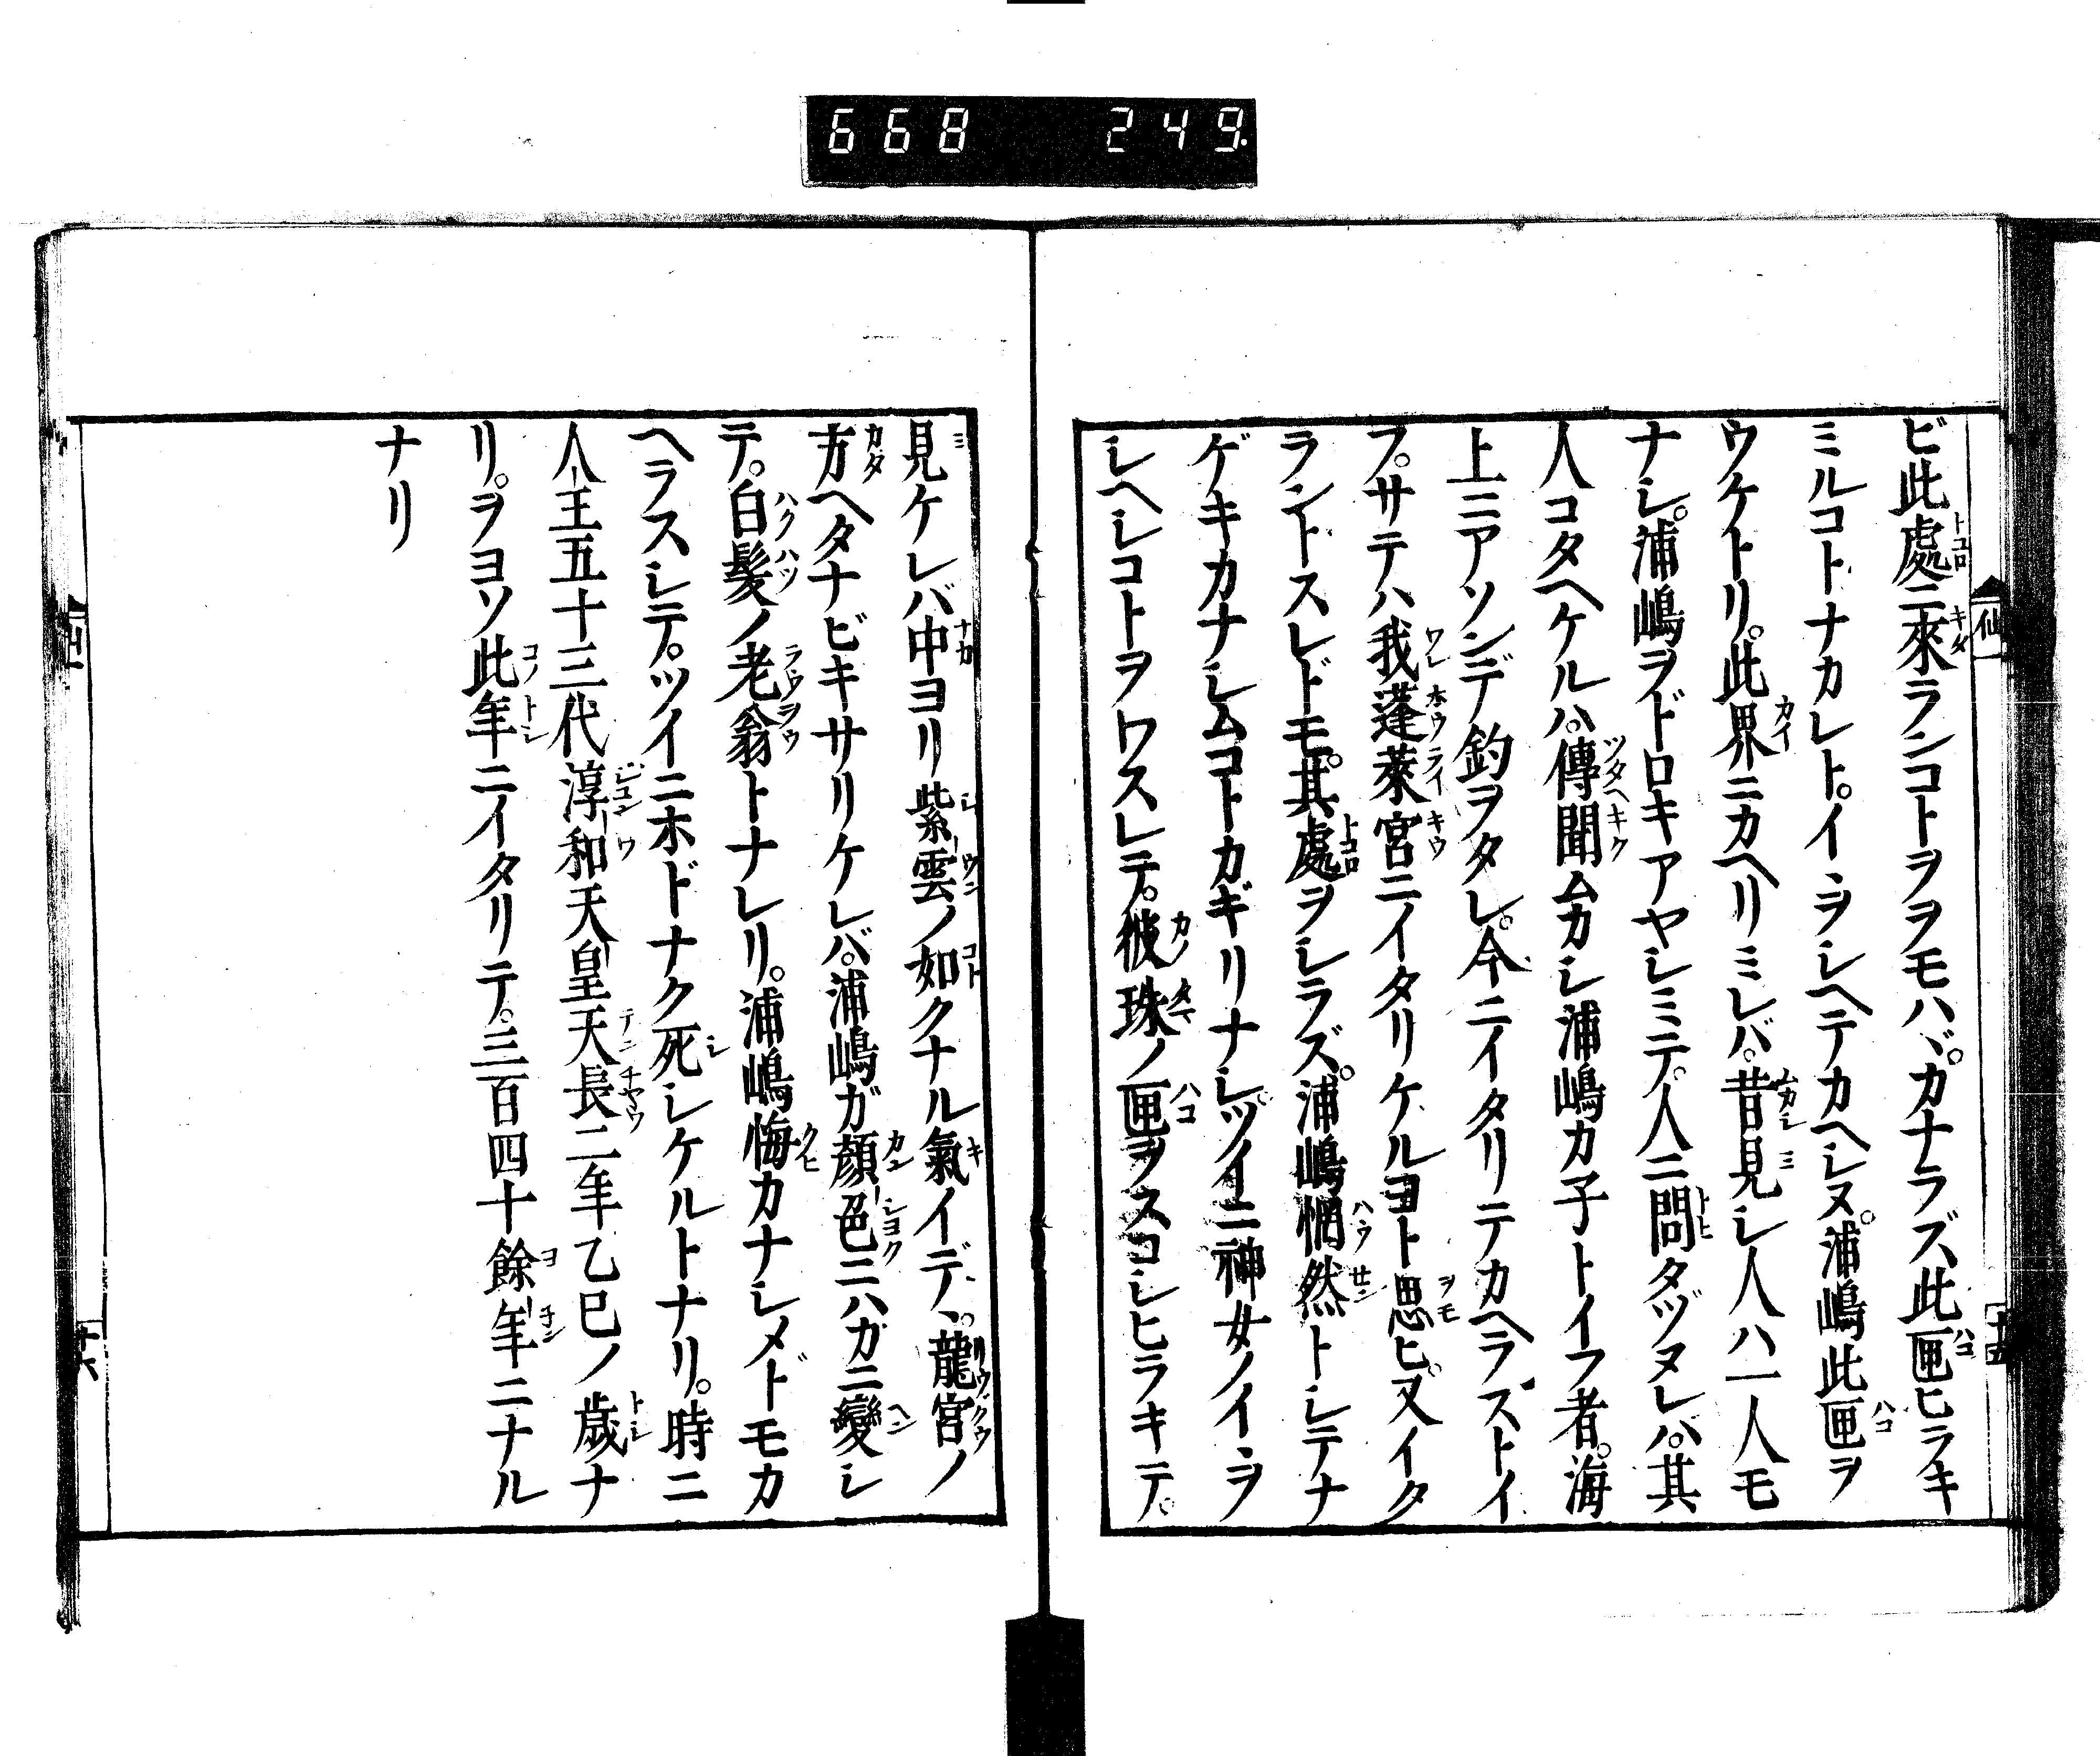 668 249
ビ此處ニ來ランコトヲヲモハヾ。カナラズ此匣ヒラキ
ミルコトナカレト。イヽヲシヘテカヘシヌ。浦嶋此匣ヲ
ウケトリ。此界ニカヘリミレバ。昔見シ人ハ一人モ
ナシ。浦嶋ヲドロキアヤシミテ。人ニ問タヅヌレバ。其
人コタヘケルハ。傳聞ムカシ浦嶋カ子トイフ者。海
上ニアソンデ釣ヲタレ。今ニイタリテカヘラストイ
フ。サテハ我蓬萊宮ニイタリケルヨト思ヒ。又イタ
ラントスレドモ。其處ヲシラズ。浦嶋惘然トシテナ
ゲキカナシムコトカギリナシ。ツイニ神女ノイヽヲ
シヘシコトヲワスレテ。彼珠ノ匣ヲスコシヒラキテ。
仙一
十五
見ケレバ中ヨリ紫雲ノ如クナル氣イデヽ。龍宮ノ
方ヘタナビキサリケレバ。浦嶋ガ顏色ニハカニ變シ
テ。白髮ノ老翁トナレリ。浦嶋悔カナシメドモカ
ヘラスシテ。ツイニホドナク死シケルトナリ。時ニ
人王五十三代淳和天皇天長二年乙巳ノ歳ナ
リ。ヲヨソ此年ニイタリテ。三百四十餘年ニナル
ナリ